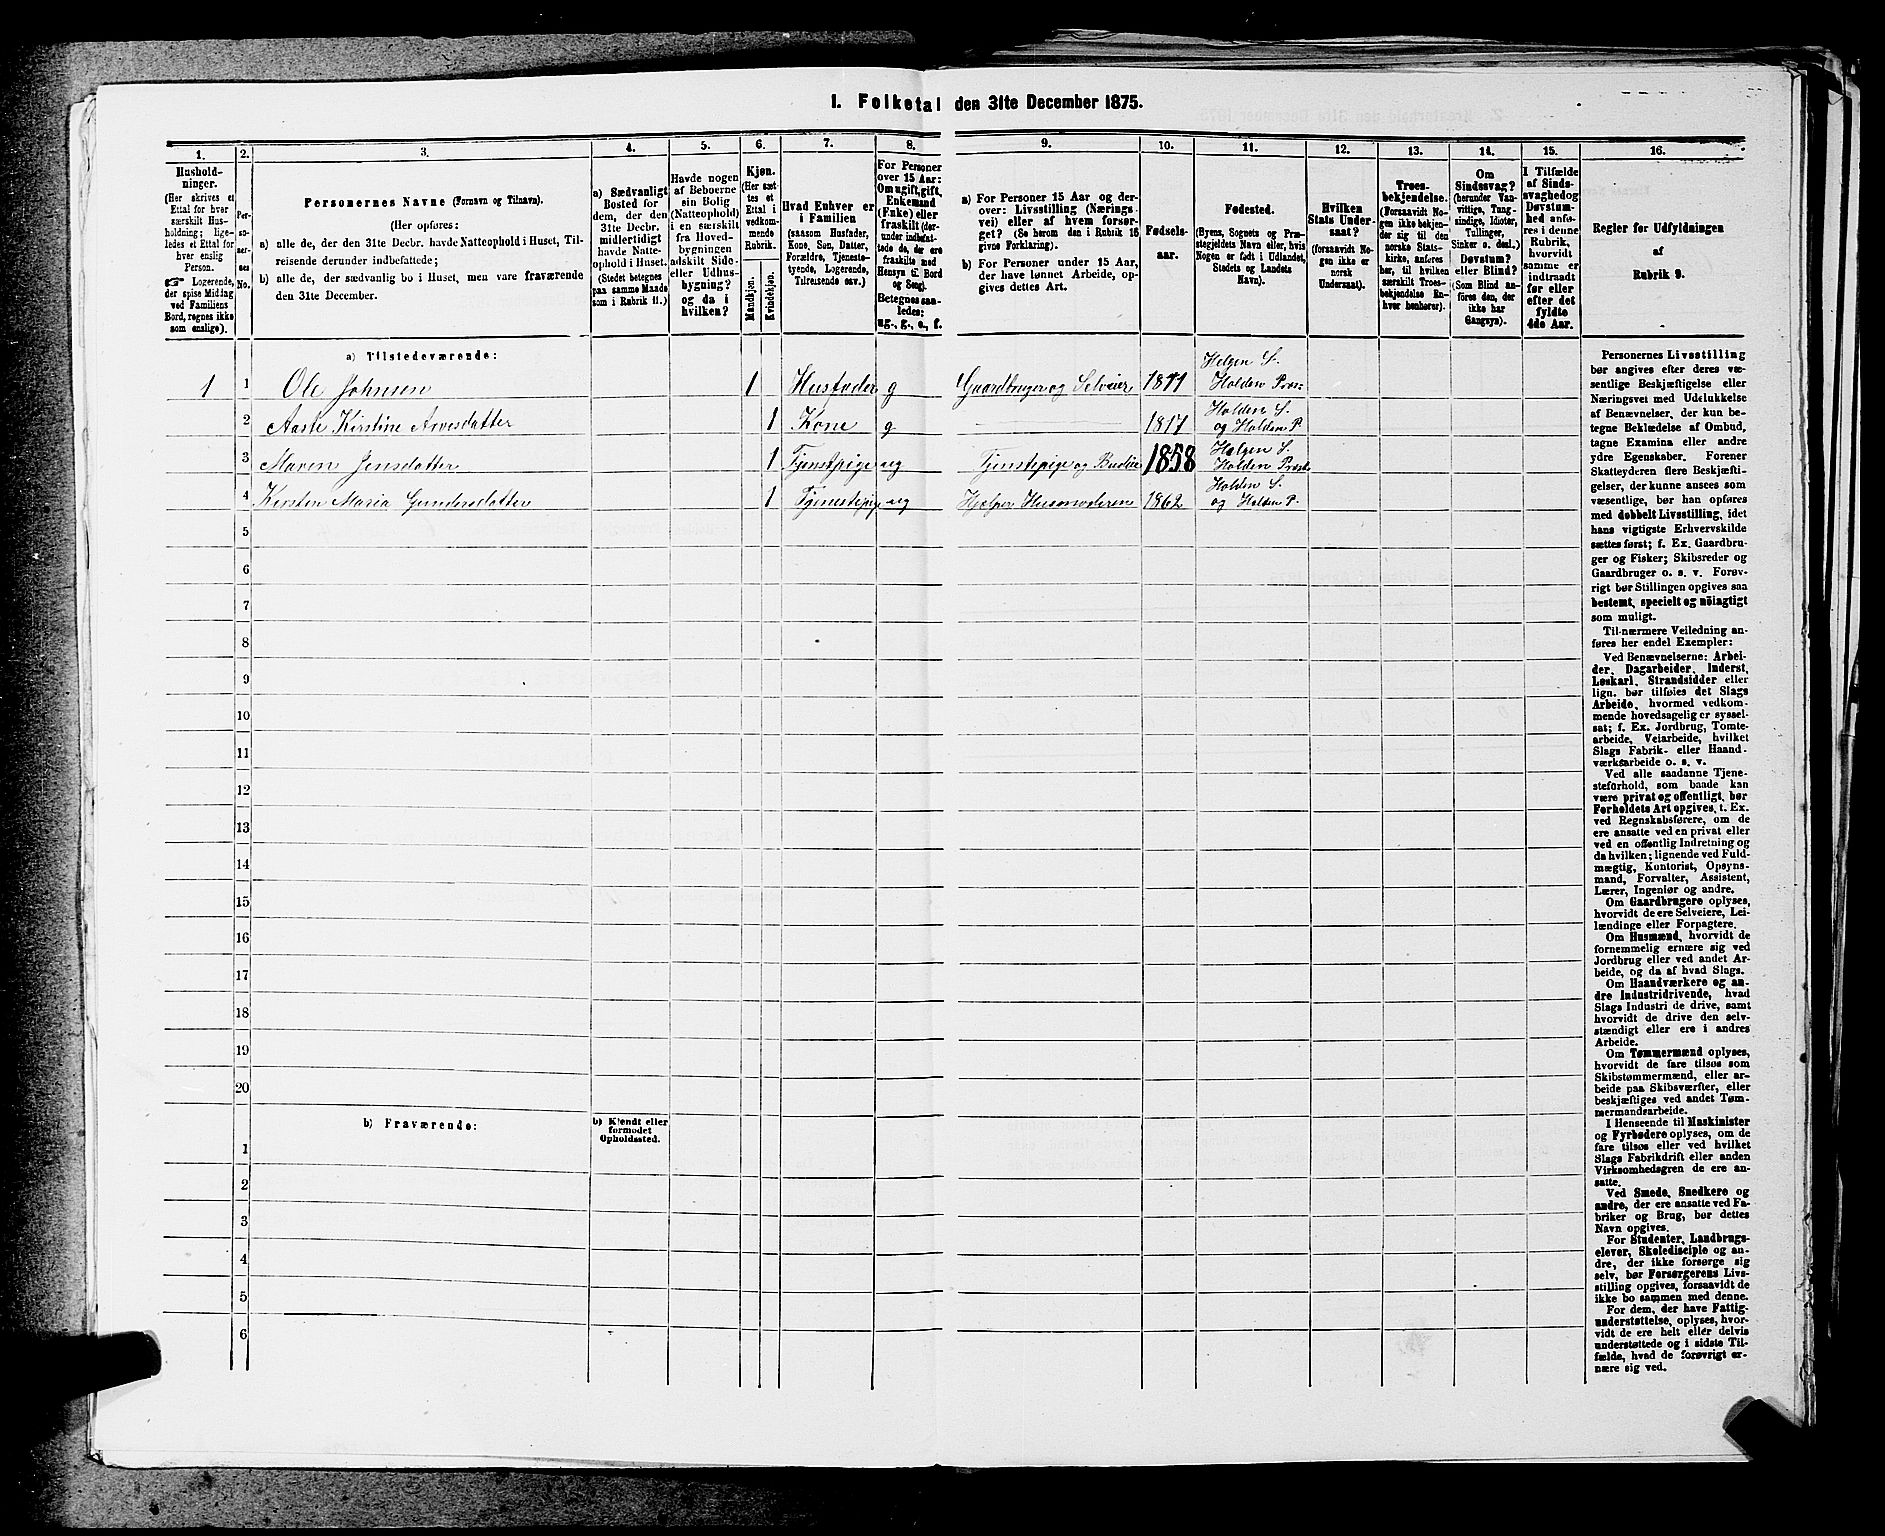 I. Folketal den 31te December 1875.
1.
Hushold-
ninger.
(Her skrives et
Ettal for hver
særskilt Hus-
holdning; lige-
ledes et Ettal for
hver enslig
Person.
☞ Logerende,
der spise Middag
ved Familiens
Bord, regnes ikke
som enslige).
2.
Per-
so-
ner-
nes
No.
3.
Personernes Navne (Fornavn og Tilnavn).
(Her opføres:
a) alle de, der den 31te Decbr. havde Natteophold i Huset, Til-
reisende derunder indbefattede;
b) alle de, der sædvanlig bo i Huset, men vare fraværende
den 31te December.
4.
a) Sædvanligt
Bosted for
dem, der den
31te Decbr.
midlertidigt
havde Natte-
ophold i Huset.
(Stedet betegnes
paa samme Maade
som i Rubrik 11.)
5.
Havde nogen
af Beboerne
sin Bolig
(Natteophold)
i en særskilt
fra Hoved-
bygningen
adskilt Side-
eller Udhus-
bygning?
og da i
hvilken?
6.
Kjøn.
(Her sæt-
tes et
Ettal i
vedkom-
mende
Rubrik.
Mandkjøn.
Kvindekjøn.
7.
Hvad Enhver er
i Familien
(saasom Husfader,
Kone, Søn, Datter,
Forældre, Tjeneste-
tyende, Logerende,
Tilreisende osv.)
8.
For Personer
over 15 Aar:
Om ugift, gift,
Enkemand
(Enke) eller
fraskilt (der-
under indbefat-
tede de, der ere
fraskilte med
Hensyn til Bord
og Seng).
Betegnes saa-
ledes:
ug., g., e., f.
9.
a) For Personer 15 Aar og der-
over: Livsstilling (Nærings-
vei) eller af hvem forsør-
get? (Se herom den i Rubrik 16
givne Forklaring).
b) For Personer under 15 Aar,
der have lønnet Arbeide, op-
gives dettes Art.
10.
Fødsels-
aar.
11.
Fødested.
(Byens, Sognets og Præ-
stegjeldets Navn eller, hvis
Nogen er født i Udlandet,
Stedets og Landets
Navn).
12.
Hvilken
Stats Under-
saat?
(forsaavidt No-
gen ikke er
norsk
Undersaat).
13.
Troes-
bekjendelse.
(Forsaavidt No-
gen ikke bekjen-
der sig til den
norske Stats-
kirke, anføres
her, til hvilken
særskilt Troes-
bekjendelse En-
hver henhører).
14.
Om
Sindssvag?
(herunder Van-
vittige, Tung-
sindige, Idioter,
Tullinger,
Sinker o. desl.)
Døvstum?
eller Blind?
(Som Blind an-
føres den, der
ikke har
Gangsyn).
15.
I Tilfælde
af Sinds-
svaghed og
Døvstum-
hed anfø-
res i denne
Rubrik,
hvorvidt
samme er
indtraadt
før eller
efter det
fyldte
4de Aar.
16.
Regler for Udfyldningen
af
Rubrik 9.
a) Tilstedeværende:
1 1 Ole Johnsen 1 Husfader g Gaardbruger og Selveier 1811 Helgen S. Holden Præs:
2 Aaste Kirstine Arvesdatter 1 Kone g 1817 Holden S. og Holden P.
3 Maren Jensdatter 1 Tjenstpige ug Tjenstepige og Budeie 1858 Helgen S. Holden Præst
4 Kirsten Maria Gundersdatter 1 Tjenestepige ug Hjælper Husmoderen 1862 Holden S. og Holden P.
5
6
7
8
9
10
11
12
13
14
15
16
17
18
19
20
b) Fraværende:
b) Kjendt eller
formodet
Opholdssted.
1
2
3
4
5
6
Personernes Livsstilling
bør angives efter deres væ-
sentlige Beskjæftigelse eller
Næringsvei med Udelukkelse
af Benævnelser, der kun be-
tegne Beklædelse af Ombud,
tagne Examina eller andre
ydre Egenskaber. Forener
Skatteyderen flere Beskjæfti-
gelser, der kunne ansees som
væsentlige, bør han opføres
med dobbelt Livsstilling, idet
hans vigtigste Erhvervskilde
sættes først; f. Ex. Gaardbru-
ger og Fisker; Skibsreder og
Gaardbruger o. s. v. Forøv-
rigt bør Stillingen opgives saa
bestemt, specielt og nöiagtigt
som muligt.
Til nærmere Veiledning an-
føres her endel Exempler:
Ved Benævnelserne: Arbei-
der, Dagarbeider, Inderst,
Løskarl, Strandsidder eller
lign. bør tilføies det Slags
Arbeide, hvormed vedkom-
mende hovedsagelig er syssel-
sat; f. Ex. Jordbrug, Tomte-
arbeide, Veiarbeide, hvilket
Slags Fabrik- eller Haand-
værksarbeide o. s. v.
Ved alle saadanne Tjene-
steforhold, som baade kan
være privat og offentligt, bør
Forholdets Art opgives, t. Ex.
ved Regnskabsførere, om de
ere ansatte ved en privat eller
ved en offentlig Indretning og
da hvilken; lignende ved Fuld-
mægtig, Kontorist, Opsyns-
mand, Forvalter, Assistent,
Lærer, Ingeniør og andre.
Om Gaardbrugere oplyses,
hvorvidt de ere Selveiere, Lei-
lændinge eller Forpagtere.
Om Husmænd, hvorvidt de
fornemmelig ernære sig ved
Jordbrug eller ved andet Ar-
beide, og da af hvad Slags.
Om Haandværkere og an-
dre Industridrivende, hvad
Slags Industri de drive, samt
hvorvidt de drive den selv-
stændigt eller ere i andres
Arbeide.
Om Tømmermænd oplyses,
hvorvidt de fare tilsøs som
Skibstømmermænd, eller ar-
beide paa Skibsværfter, eller
beskjæftiges ved andet Tøm-
mermandsarbeide.
I Henseende til Maskinister
og Fyrbødere oplyses, om de
fare tilsøs eller ved hvilket
Slags Fabrikdrift eller anden
Virksomhedsgren de ere an-
satte.
Ved Smede, Snedkere og
andre, der ere ansatte ved Fa-
briker og Brug, bør dettes
Navn opgives.
For Studenter, Landbrugs-
elever, Skoledisciple og an-
dre, der ikke forsørge sig
selv, bør Forsørgerens Livs-
stilling opgives, forsaavidt de
ikke bo sammen med denne.
For dem, der have Fattig-
understøttelse, oplyses, hvor-
vidt de ere helt eller delvis
understøttede og i sidste Til-
fælde, hvad de forøvrigt er-
nære sig ved.